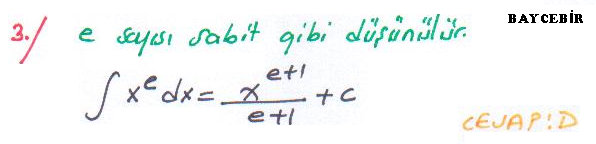 3./ e sayısı sabit gibi düşünülür.
BAYCEBİR
∫ x^e dx = x^(e+1)/(e+1) + c
CEVAP: D